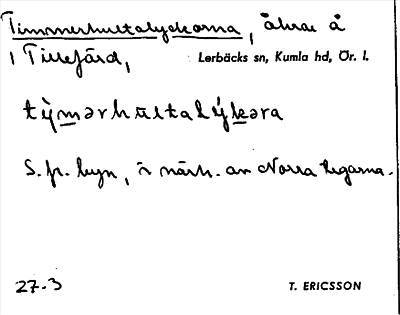 Timmerhultalyckorna, åkrar å
i Tillefärd,
Lerbäcks sn, Kumla hd, Ör. l.
S. fr. byn, i närh. av Norra legarna.
27.3
T. ERICSSON